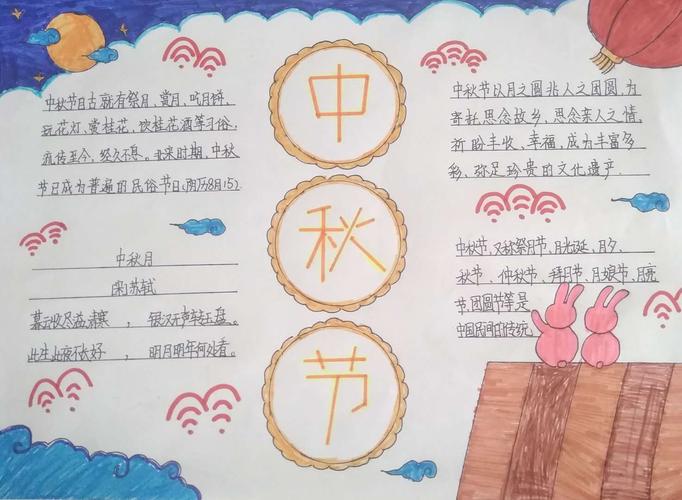 中
秋
节
中秋节自古就有祭月、赏月、吃月饼、
玩花灯、赏桂花、饮桂花酒等习俗,
流传至今,经久不息。北宋时期,中秋
节已成为普遍的民俗节日(阴历8月15).
中秋月
宋苏轼
暮云收尽溢清寒,银汉无声转玉盘。
此生此夜不长好,明月明年何处看。
中秋节以月之圆兆人之团圆,为
寄托思念故乡,思念亲人之情,
祈盼丰收、幸福,成为丰富多
彩、弥足珍贵的文化遗产.
中秋节,又称祭月节、月光诞、月夕、
秋节、仲秋节、拜月节、月娘节、月亮
节、团圆节等是
中国民间的传统.